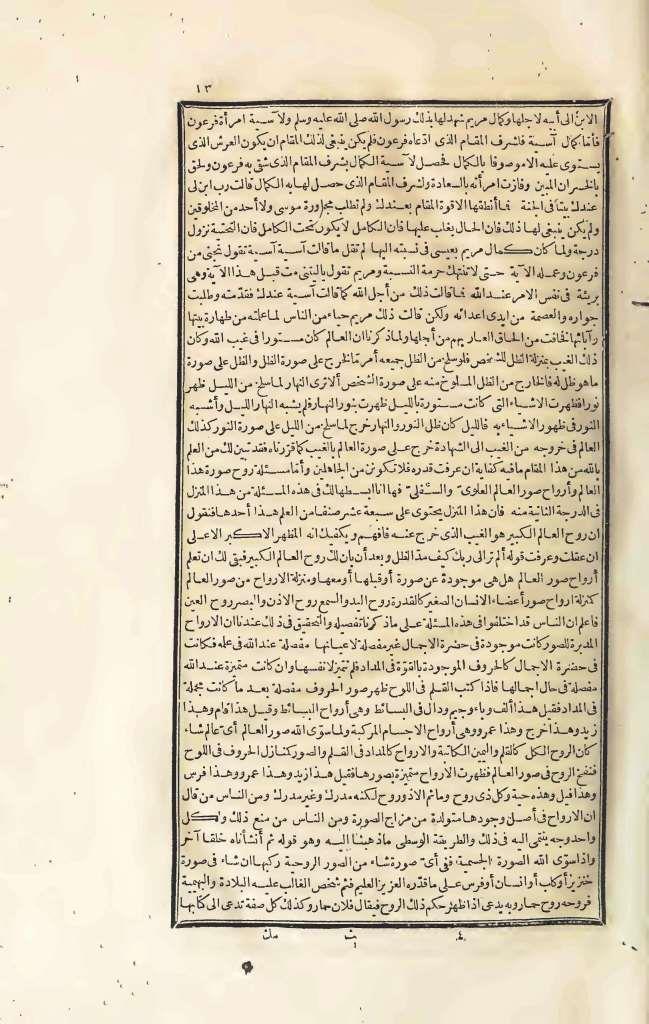 ١٣
الابن الى أمه لاجلها وكمال مريم شهد لها بذلك رسول الله صلى الله عليه وسلم ولآسية امرأة فرعون
فأما كمال آسية فلشرف المقام الذى ادعاه فرعون فلم يكن ينبغى لذلك المقام ان يكون العرش الذى
يستوى عليه الاموصوفا بالكمال فحصل لآسية الكمال بشرف المقام الذى شقى به فرعون ولحق
بالخسران المبين وفازت امرأته بالسعادة ولشرف المقام الذى حصل لها به الكمال قالت رب ابن لى
عندك بيتا فى الجنة فما أنطقها الاقوة المقام بعندك ولم تطلب مجاورة موسى ولا أحد من المخلوقين
ولم يكن ينبغى لها ذلك فان الحال يغلب عليها فان الكامل لا يكون تحت الكامل فان التحتية نزول
درجة ولما كان كمال مريم بعيسى فى نسبته اليها لم تقل ما قالت آسية آسية تقول نجنى من
فرعون وعمله الآية حتى لا تنتهك حرمة النسبة ومريم تقول ياليتنى مت قبل هذا الآية وهى
بريئة فى نفس الامر عند الله فما قالت ذلك من أجل الله كما قالت آسية عندك فقدمته وطلبت
جواره والعصمة من أيدى اعدائه ولكن قالت ذلك مريم حياء من الناس لما علمته من طهارة بيتها
وآبائها فخافت من الحاق العار بهم من أجلها ولما ذكرنا ان العالم كان مستورا فى غيب الله وكان
ذلك الغيب بمنزلة الظل للشخص فلو سلخ من الظل جميعه أمر ما لخرج على صورة الظل والظل على صورة
ما هو ظل له فالخارج من الظل المسلوخ منه على صورة الشخص ألا ترى النهار لما سلخ من الليل ظهر
نورا فظهرت الاشياء التى كانت مستورة بالليل ظهرت بنور النهار فلم يشبه النهار الليل وأشبه
النور فى ظهور الاشياء به فالليل كان ظل النور والنهار خرج لما سلخ من الليل على صورة النور كذلك
العالم فى خروجه من الغيب الى الشهادة خرج على صورة العالم بالغيب كما قررناه فقد تبين لك من العلم
بالله من هذا المقام ما فيه كفاية ان عرفت قدره فلا تكونن من الجاهلين وأما مسئلة روح صورة هذا
العالم وأرواح صور العالم العلوى والسفلى فها انا ابسطها لك فى هذه المسئلة من هذا المنزل
فى الدرجة الثانية منه فان هذا المنزل يحتوى على سبعة عشر صنفا من العلم هذا أحدها فنقول
ان روح العالم الكبير هو الغيب الذى خرج عنه فافهم ويكفيك انه المظهر الاكبر الاعلى
ان عقلت وعرفت قوله ألم تر الى ربك كيف مد الظل وبعد أن بان لك روح العالم الكبير فبقى لك ان تعلم
أرواح صور العالم هل هى موجودة عن صورة أو قبلها أو معها ومنزلة الارواح من صور العالم
كمنزلة ارواح صور أعضاء الانسان الصغير كالقدرة روح اليد والسمع روح الاذن والبصر روح العين
فاعلم ان الناس قد اختلفوا فى هذه المسئلة على ما ذكرناه تفصيله والتحقيق فى ذلك عندنا ان الارواح
المدبرة للصور كانت موجودة فى حضرة الاجمال غير مفصلة لاعيانها مفصلة عند الله فى علمه فكانت
فى حضرة الاجمال كالحروف الموجودة بالقوة فى المداد فلم تتميز لانفسها وان كانت متميزة عند الله
مفصلة فى حال اجمالها فاذا كتب القلم فى اللوح ظهر صور الحروف مفصلة بعد ما كانت مجملة
فى المداد فقيل هذا ألف وباء وجيم ودال فى البسائط وهى أرواح البسائط وقيل هذا قام وهذا
زيد وهذا خرج وهذا عمرو وهى أرواح الاجسام المركبة ولما سوى الله صور العالم أى عالم شاء
كان الروح الكل كالقلم واليمين الكاتبة والارواح كالمداد فى القلم والصور كمنازل الحروف فى اللوح
فنفخ الروح فى صور العالم فظهرت الارواح متميزة بصورها فقيل هذا زيد وهذا عمرو وهذا فرس
وهذا فيل وهذه حية وكل ذى روح وما ثم الا ذو روح لكنه مدرك وغير مدرك ومن الناس من قال
ان الارواح فى أصل وجودها متولدة من مزاج الصورة ومن الناس من منع ذلك ولكل
واحد وجه ينتمى اليه فى ذلك والطريقة الوسطى ما ذهبنا اليه وهو قوله ثم أنشأناه خلقا آخر
واذا سوى الله الصورة الجسمية ففى أى صورة شاء من الصور الروحية ركبها ان شاء فى صورة
خنزير أو كلب أو انسان أو فرس على ما قدره العزيز العليم فثم شخص الغالب عليه البلادة والبهيمية
فروحه روح حمار وبه يدعى اذا ظهر حكم ذلك الروح فيقال فلان حمار وكذلك كل صفة تدعى الى كتابها